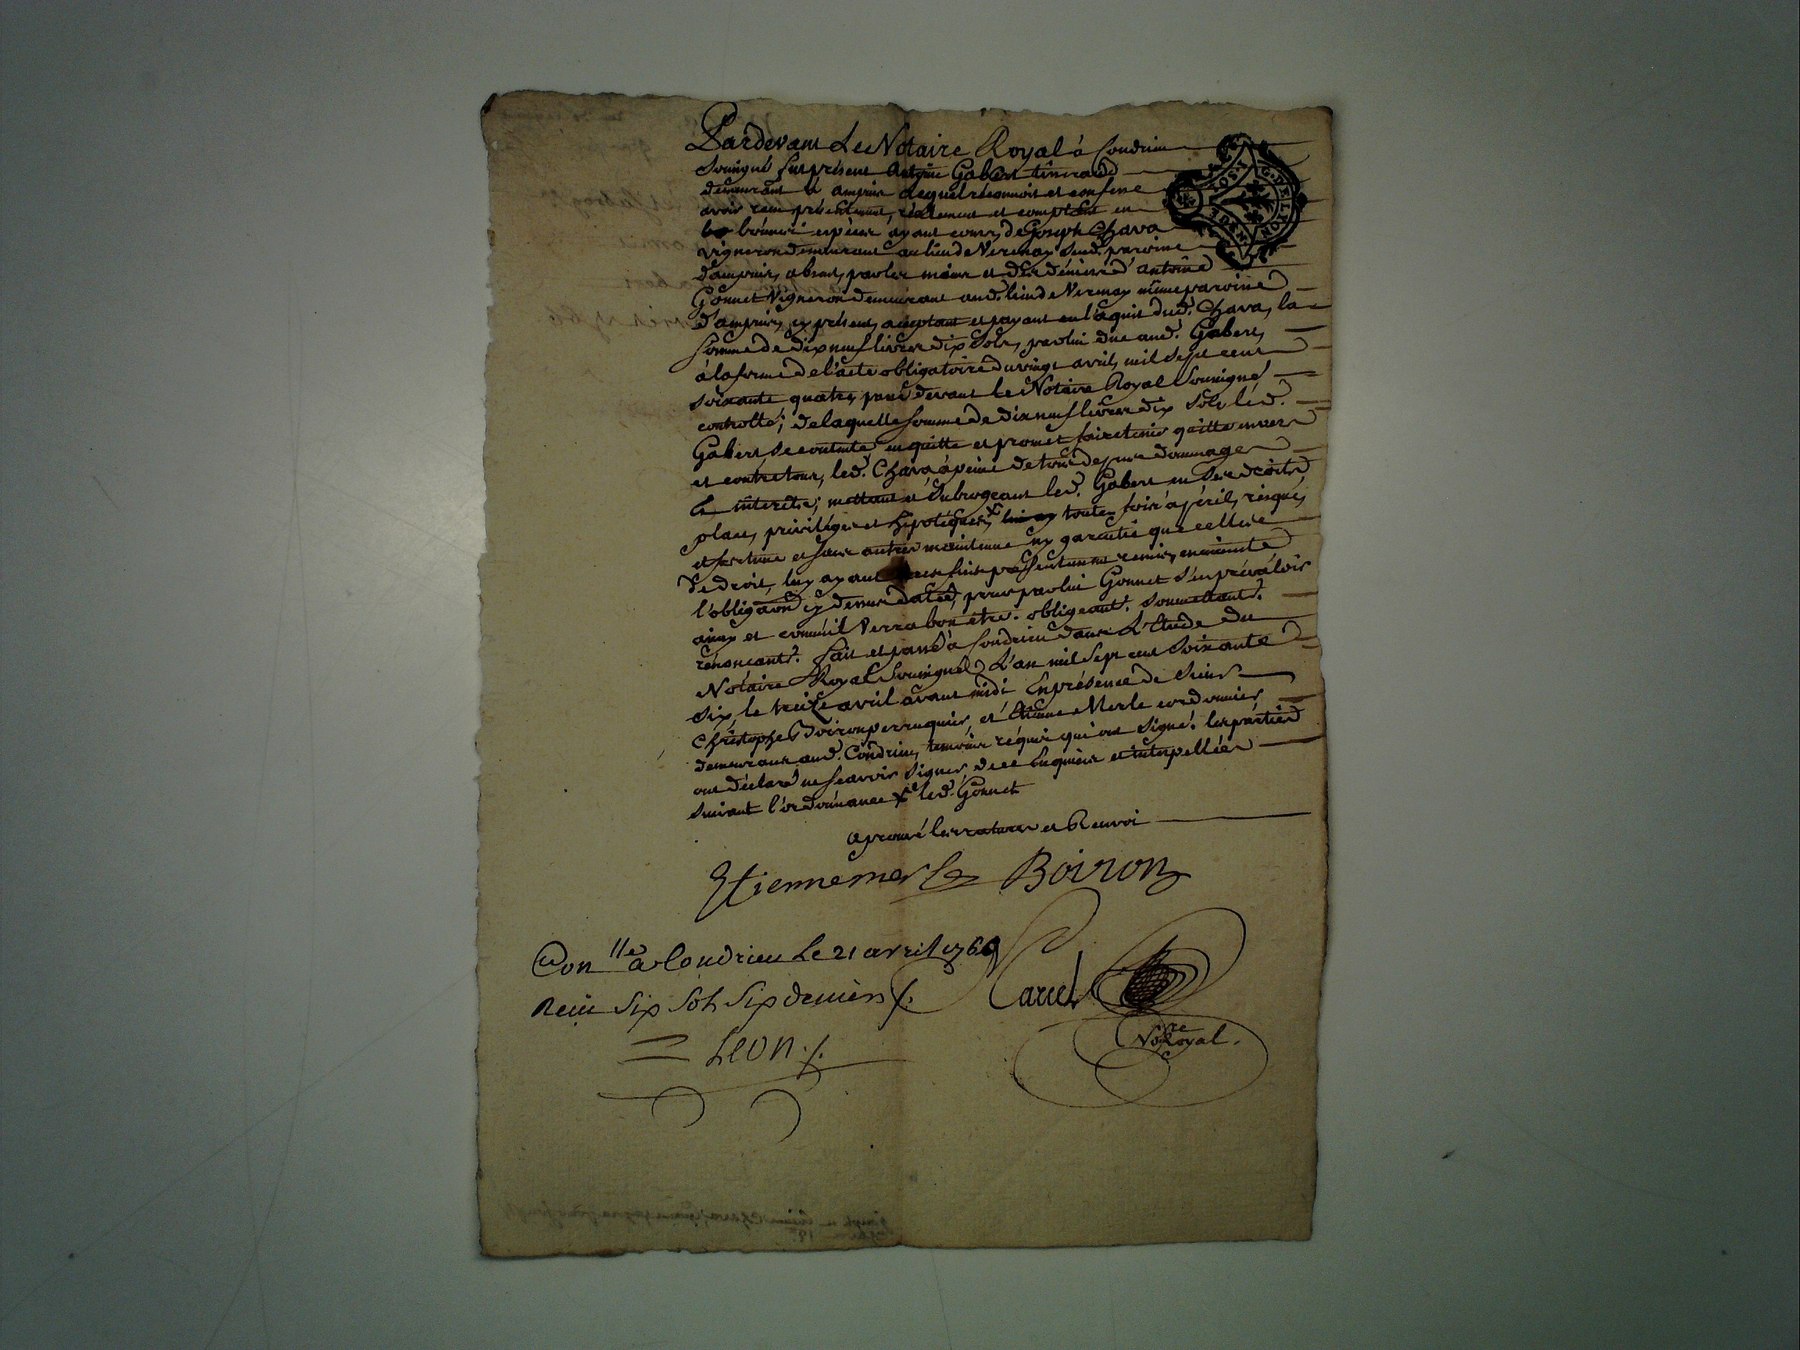 Pardevant Le Notaire Royal à Condrieu
Soussigné fut présent Antoine Gabert
demeurant à ampuis lequel reconnoit et confesse
avoir reçu présentement, réellement et comptant en
bonnes espèces ayant cours, de Joseph Chava
vigneron demeurant au lieu de Verenay Susd. paroisse
d'ampuis, absent, par les mains et des déniers d'antoine
Gonnet Vigneron demeurant aud. lieu de Verenay même paroisse
d'ampuis, cy présent, acceptant et payant en l'aquit dud. Chava, la
somme de dix neuf livres dix Sols, par lui due aud. Gabert,
à la forme de l'acte obligatoire du vingt avril mil Sept cent
soixante quatre, passé devant le Notaire Royal Soussigné
controllé; de laquelle somme de dix neuf livres dix sols led.
Gabert, se contente, en quitte et promet faire tenir quitte envers
et contre tous, led. Chava, à peine de tous depens dommages
& intérêts; mettant et Subrogeant led. Gabert en Ses droits,
place, privilèges et hipotèques, × toutes fois à péril, risque,
et fortune et sans autres maintenue ny garentie que celle
de droit, luy ayant présentement remis, en minute
l'obligaôn cy dessus datée, pour par lui Gonnet s'en prévaloir
ainsy et comm'il Verra bon etre. obligeant. Soumettant.
rénoncant. fait et passé à Condrieu dans L'Etude du
Notaire Royal Soussigné L'an mil Sept cent Soixante
Six, le treize avril avant midi En présence de Sieurs
Christophe Boiron perruquier, et Etienne Merle cordonnier,
demeurans aud. Condrieu, temoins réquis qui ont signé. les parties
ont déclaré ne scavoir signer, de ce enquises et interpellées
suivant l'ordonnance × led. Gonnet
aprouvé les ratures et Renvoi
Etienne merle Boiron
Con.lle à Condrieu Le 21 avril 1766
Reçu Six Sols Six deniers
Leon
Not.re Royal.